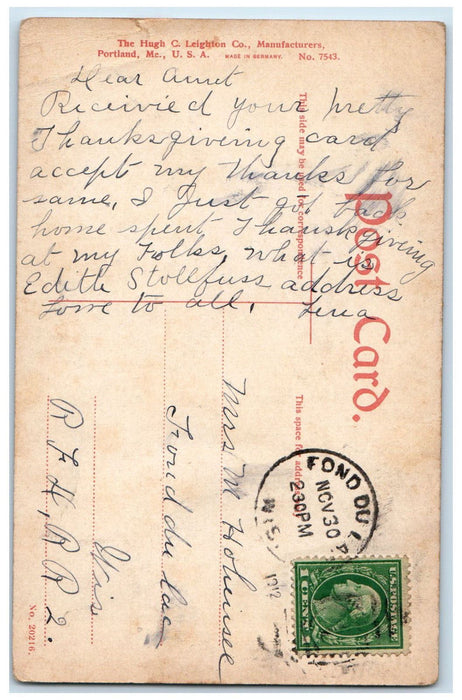 The Hugh C. Leighton Co., Manufacturers,
Portland, Me., U. S. A. MADE IN GERMANY. No. 7543.
Dear Aunt
Receivied your pretty
Thanksgiveing card
accept my thanks for
same, I just got back
home spent Thanksgiveing
at my Folks, what is
Edith Stollfuss address
Love to all, Lena
This side may be used for correspondence
Post Card.
This space for address
Mrs M Hohensee
Fond du lac
Wis
R F D, R R 2.
No. 20216.
FOND DU LAC
NOV 30
2:30 PM
1912
WIS.
U.S. POSTAGE
1 CENT 1